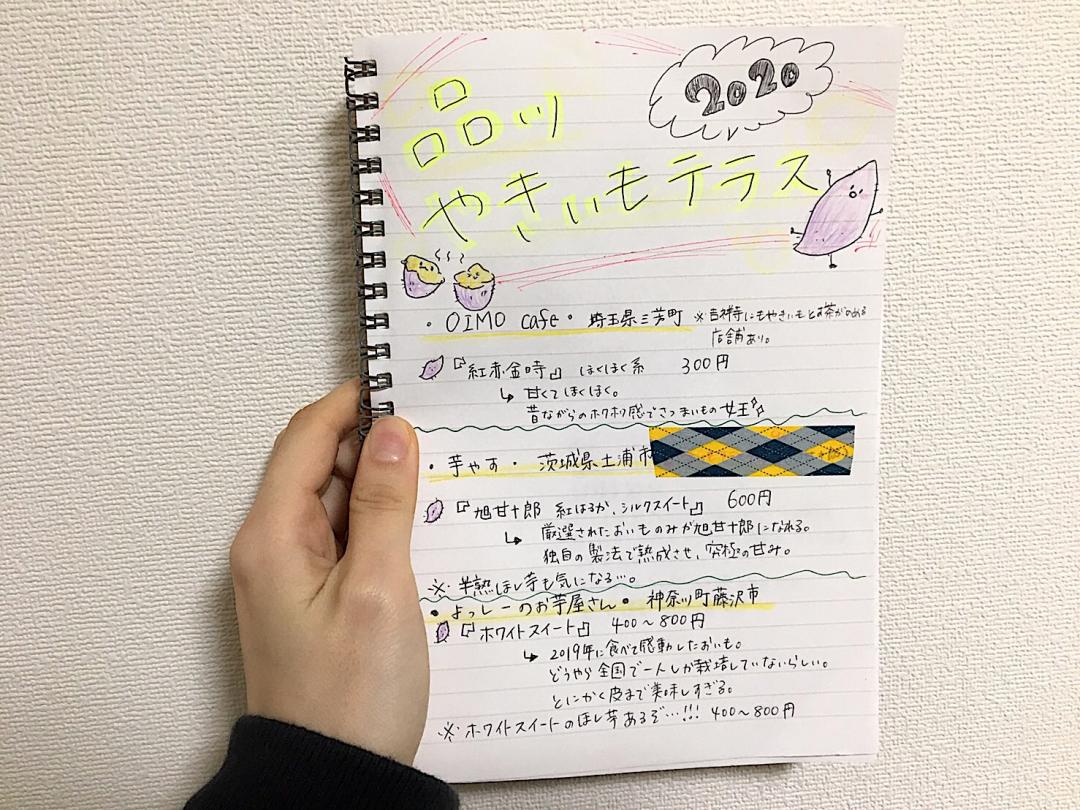 2020
品川
やきいもテラス
・OIMO cafe・ 埼玉県三芳町 ※吉祥寺にもやきいもとお茶がのめる
店舗あり。
『紅赤金時』 ほくほく系 300円
↳ 甘くてほくほく。
昔ながらのホクホク感でさつまいもの女王
・芋やす・ 茨城県土浦市
『旭甘十郎 紅はるか、シルクスイート』 600円
↳ 厳選されたおいものみが旭甘十郎になれる。
独自の製法で熟成させ、究極の甘み。
※ 半熟ほし芋も気になる…。
・よっしーのお芋屋さん・ 神奈川町藤沢市
『ホワイトスイート』 400〜800円
↳ 2019年に食べて感動したおいも。
どうやら全国で一人しか栽培していないらしい。
とにかく皮まで美味しすぎる。
※ ホワイトスイートのほし芋あるぞ…!!! 400〜800円